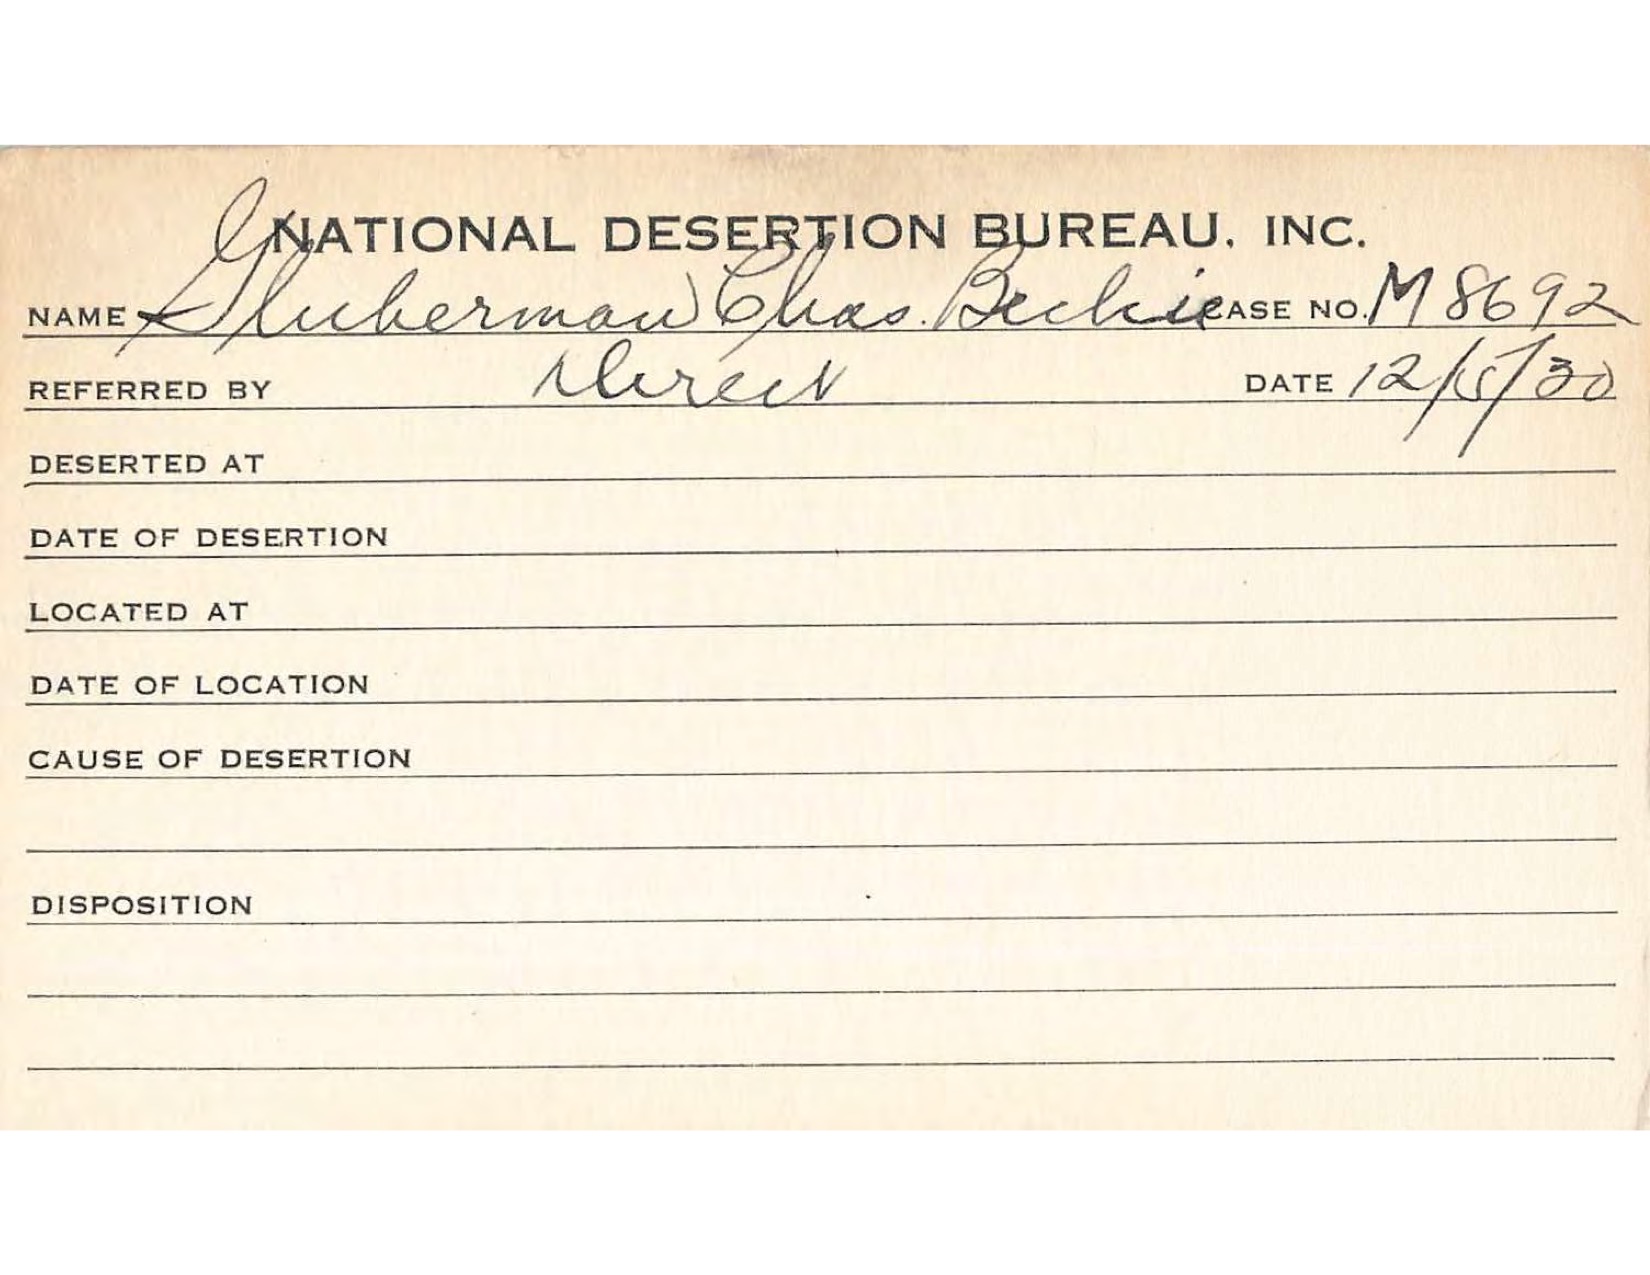 NATIONAL DESERTION BUREAU, INC.
NAME Gluberman Chas. Beckie CASE NO. M 8692
REFERRED BY Direct DATE 12/15/30
DESERTED AT
DATE OF DESERTION
LOCATED AT
DATE OF LOCATION
CAUSE OF DESERTION
DISPOSITION